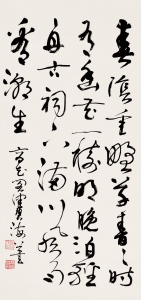 春陰垂野草青々時
有幽花一樹明晚泊孤
舟古祠下滿川風雨
看潮生